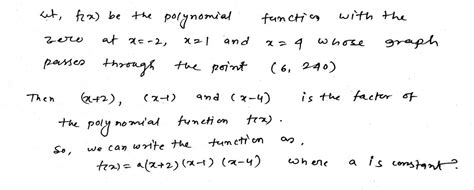 Let, f(x) be the polynomial function with the
zero at x=-2, x=1 and x=4 whose graph
passes through the point (6, 240)
Then (x+2), (x-1) and (x-4) is the factor of
the polynomial function f(x).
So, we can write the function as,
f(x)=a(x+2)(x-1)(x-4) where a is constant.